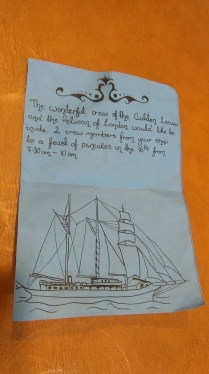 The wonderful crew of the Gulden Leeuw
and the Pelican of London would like to
invite 2 crew members from your ship
to a feast of pancakes on the 16th from
7:30am - 10am